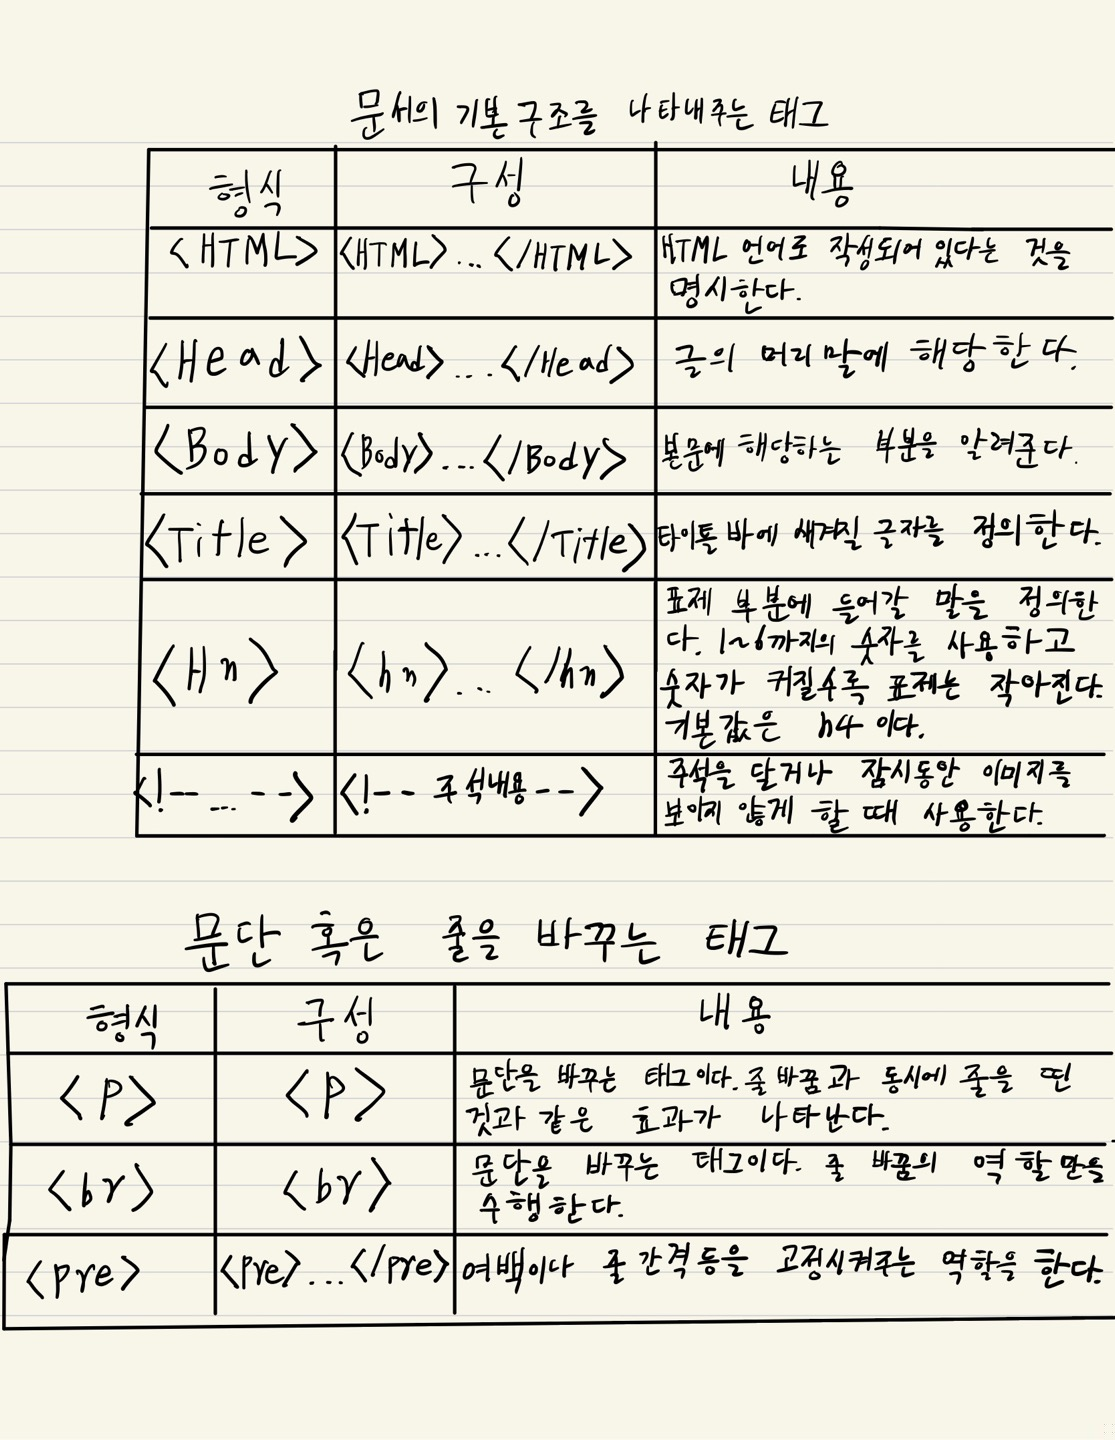 문서의 기본구조를 나타내주는 태그
형식 구성 내용
<HTML> <HTML>...</HTML> HTML 언어로 작성되어 있다는 것을
명시한다.
<Head> <Head>...</Head> 글의 머리말에 해당한다.
<Body> <Body>...</Body> 본문에 해당하는 부분을 알려준다.
<Title> <Title>...</Title> 타이틀 바에 새겨질 글자를 정의한다.
<Hn> <hn>... </hn> 표제 부분에 들어갈 말을 정의한
다. 1~6까지의 숫자를 사용하고
숫자가 커질수록 표제는 작아진다.
기본값은 h4 이다.
<!-- ... --> <!-- 주석내용--> 주석을 달거나 잠시동안 이미지를
보이지 않게 할 때 사용한다.
문단 혹은 줄을 바꾸는 태그
형식 구성 내용
<P> <P> 문단을 바꾸는 태그이다. 줄바꿈과 동시에 줄을 띤
것과 같은 효과가 나타난다.
<br> <br> 문단을 바꾸는 태그이다. 줄 바꿈의 역할만을
수행한다.
<pre> <pre>...</pre> 여백이나 줄간격등을 고정시켜주는 역할을 한다.